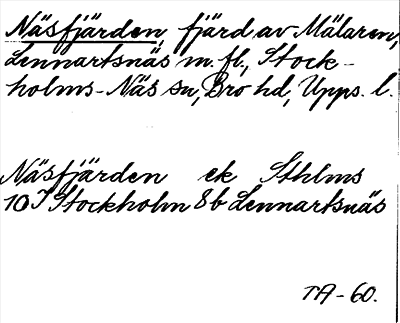 Näsfjärden, fjärd av Mälaren,
Lennartsnäs m. fl., Stock-
holms-Näs sn, Bro hd, Upps. l.
Näsfjärden ek Sthlms
10I Stockholm 8b Lennartsnäs
TA-60.